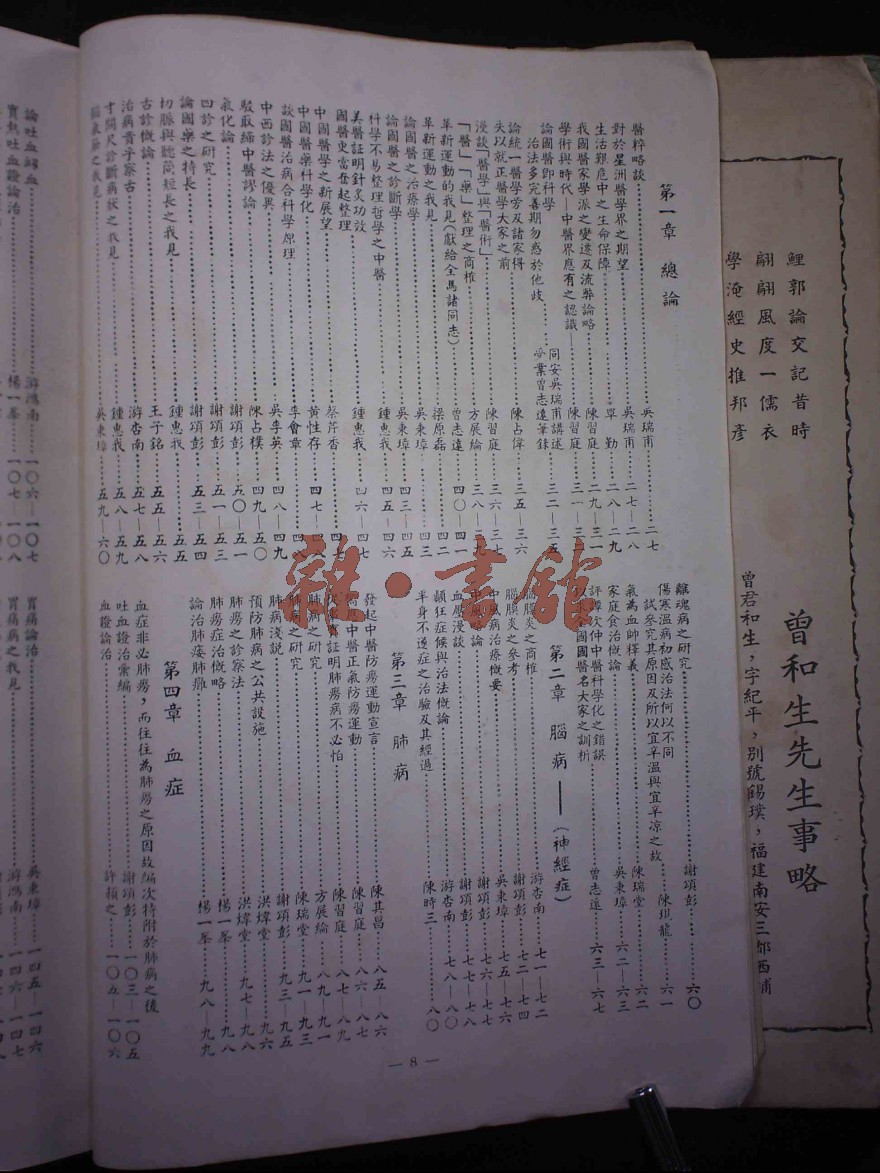 第一章 總論
醫粹略談 吳瑞甫 二七
對於星洲醫學界之期望 吳瑞甫 二七—二八
生活艱危中之生命保障 單勤 二八—二九
我國醫家學派之變遷及流弊論略 陳習庭 二九—三一
學術與時代—中醫界應有之認識— 陳習庭 三一—三二
論國醫即科學 同安吳瑞甫講述
受業曾志遠筆錄 三二—三五
治法多完善期勿惑於他歧
論統一醫學旁及諸家得失以就正醫學大家之前 陳占偉 三五—三六
漫談「醫學」與「醫術」 陳習庭 三六—三七
「醫」「藥」整理之商榷 方展綸 三八—三九
革新運動的我見(獻給全馬諸同志) 曾志遠 四〇—四一
革新運動之我見 梁原磊 四二
論國醫之治療學 吳秉璋 四三
論國醫之診斷學 吳秉璋 四三—四五
科學不易整理哲學之中醫 鍾惠我 四五—四六
美醫証明針灸功效
國醫史當奮起整理 鍾惠我 四六—四七
中國醫學之新展望 蔡芹香 四七
中國醫藥科學化 黃性存 四七—四八
談國醫治病合科學原理 李會章 四八—四九
中西診法之優異 吳李英 四八—四九
駁取締中醫謬論 陳占樸 四九—五〇
氣化論 謝項彭 五〇—五一
四診之研究 謝項彭 五一—五三
論國藥之特長 謝項彭 五三—五四
切脉與聽筒短長之我見 鍾惠我 五五
古診概論 王子銘 五五—五六
治病貴乎察古 游杏南 五七—五八
寸關尺診斷病狀之我見 鍾惠我 五八—五九
吳秉璋 五九—六〇
離魂病之研究 謝項彭 六〇
傷寒溫病初感治法何以不同
試參究其原因及所以宜辛溫與宜辛凉之故 陳琪龍 六一
氣為血帥釋義 陳瑞堂 六二
家庭食治概論 吳秉璋 六二—六三
評譚次仲中醫科學化之錯誤
以求全國國醫名大家之訓析 曾志遠 六三—六七
第二章 腦病——(神經症)
腦膜炎之商榷 游杏南 七一—七二
腦膜炎之參考 謝項彭 七二—七四
中風病治療概要 吳秉璋 七五—七六
中風略論 謝項彭 七六—七七
血壓淺談 謝項彭 七七
顛狂症候與治法概論 游杏南 七八—八〇
半身不遂症之治驗及其經過 陳時三 八〇
第三章 肺病
發起中醫防癆運動宣言 陳其昌 八五—八六
中醫正氣防癆運動 陳習庭 八六—八七
証明肺癆病不必怕 陳習庭 八七—八九
肺病之研究 方展綸 八九—九一
肺病之研究 陳瑞堂 九一—九三
肺病淺說 謝項彭 九三—九五
預防肺病之公共設施 洪煒堂 九六
肺癆之診察法 洪煒堂 九七—九八
肺癆症治概略 楊一峯 九八
論治肺痿肺癰 楊一峯 九八—九九
第四章 血症
血症非必肺癆,而往往為肺癆之原因故編次特附於肺病之後
吐血證治彙編 謝項彭 一〇三—一〇五
血證論治 許賴之 一〇五—一〇六
— 8 —
論吐血衂血 游鴻南 一〇六—一〇七
實熱吐血證論治 楊一峯 一〇七—一〇八
胃病論治 吳秉璋 一四五—一四六
胃痛病之我見 游鴻南 一四六—一四七
鯉郭論交記昔時
翩翩風度一儒衣
學淹經史推邦彥
曾和生先生事略
曾君和生,字紀平,別號錫璞,福建南安三都西浦
雜·書館